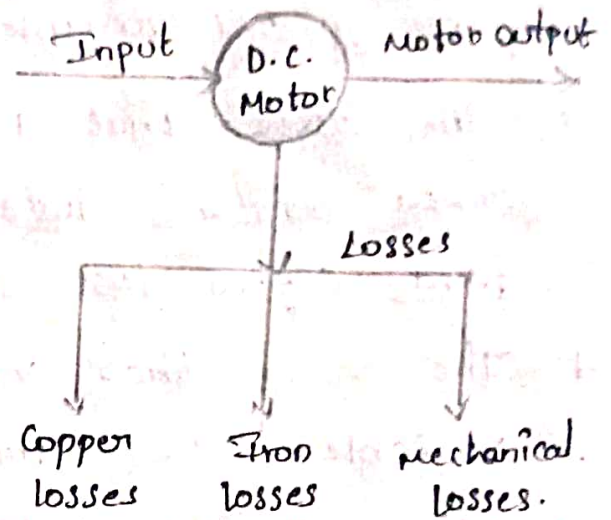 Input
D.C.
Motor
Motor output
Losses
Copper
losses
Iron
losses
Mechanical
losses.